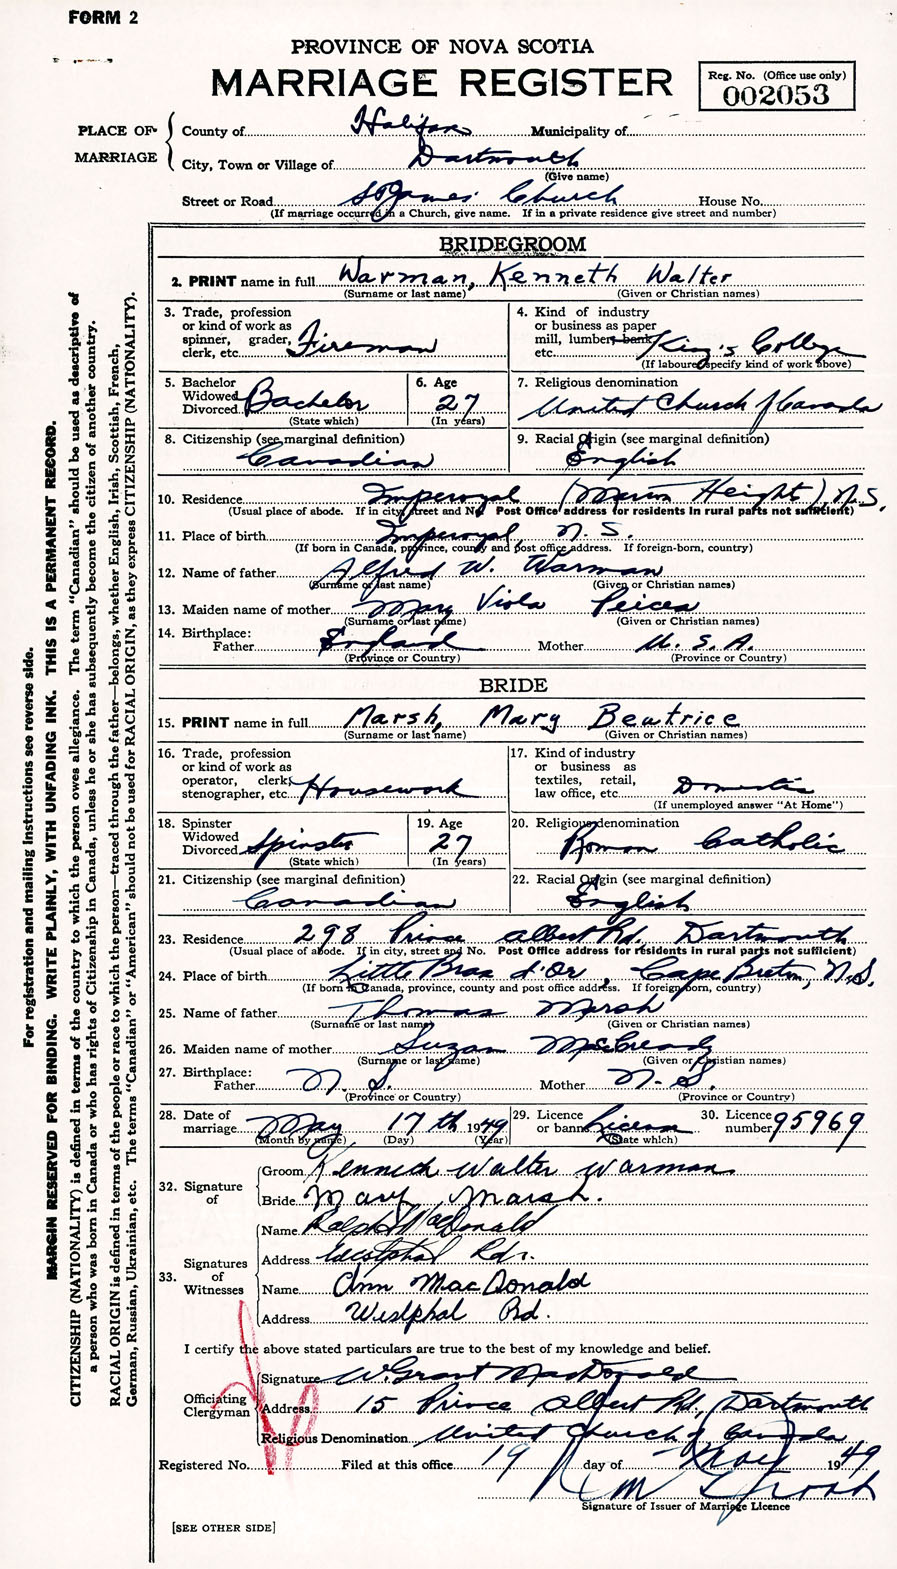 FORM 2
PROVINCE OF NOVA SCOTIA
MARRIAGE REGISTER
Reg. No. (Office use only)
002053
PLACE OF MARRIAGE
County of Halifax Municipality of
City, Town or Village of Dartmouth
(Give name)
Street or Road St James Church House No.
(If marriage occurred in a Church, give name. If in a private residence give street and number)
BRIDEGROOM
2. PRINT name in full Warman, Kenneth Walter
(Surname or last name) (Given or Christian names)
3. Trade, profession or kind of work as spinner, grader, clerk, etc. Fireman
4. Kind of industry or business as paper mill, lumber, bank, etc. King's College
(If labourer specify kind of work above)
5. Bachelor Widowed Divorced Bachelor
(State which)
6. Age 27
(In years)
7. Religious denomination
United Church of Canada
8. Citizenship (see marginal definition)
Canadian
9. Racial Origin (see marginal definition)
English
10. Residence Imperoyal (Height) N.S.
(Usual place of abode. If in city, street and No. Post Office address for residents in rural parts not sufficient)
11. Place of birth Imperoyal, N. S.
(If born in Canada, province, county and post office address. If foreign-born, country)
12. Name of father Alfred W. Warman
(Surname or last name) (Given or Christian names)
13. Maiden name of mother Mary Viola
(Surname or last name) (Given or Christian names)
14. Birthplace:
Father England Mother U. S. A.
(Province or Country) (Province or Country)
BRIDE
15. PRINT name in full Marsh, Mary Beatrice
(Surname or last name) (Given or Christian names)
16. Trade, profession or kind of work as operator, clerk, stenographer, etc. Housework
17. Kind of industry or business as textiles, retail, law office, etc. Domestic
(If unemployed answer "At Home")
18. Spinster Widowed Divorced Spinster
(State which)
19. Age 27
(In years)
20. Religious denomination
Roman Catholic
21. Citizenship (see marginal definition)
Canadian
22. Racial Origin (see marginal definition)
English
23. Residence 298 Prince Albert Rd. Dartmouth
(Usual place of abode. If in city, street and No. Post Office address for residents in rural parts not sufficient)
24. Place of birth Little Bras d'Or, Cape Breton, N.S.
(If born in Canada, province, county and post office address. If foreign born, country)
25. Name of father Thomas Marsh
(Surname or last name) (Given or Christian names)
26. Maiden name of mother Suzan McCready
(Surname or last name) (Given or Christian names)
27. Birthplace:
Father N. S. Mother N. S.
(Province or Country) (Province or Country)
28. Date of marriage May 17th 1949
(Month by name) (Day) (Year)
29. Licence or banns License
(State which)
30. Licence number 95969
32. Signature of
Groom Kenneth Walter Warman
Bride Mary Marsh.
33. Signatures of Witnesses
Name Ralph MacDonald
Address Westphal Rd.
Name Ann MacDonald
Address Westphal Rd.
I certify the above stated particulars are true to the best of my knowledge and belief.
Officiating Clergyman
Signature W. Grant MacDonald
Address 15 Prince Albert Rd., Dartmouth
Religious Denomination United Church of Canada
Registered No. Filed at this office 19 day of May 1949
Signature of Issuer of Marriage Licence
[SEE OTHER SIDE]
For registration and mailing instructions see reverse side.
MARGIN RESERVED FOR BINDING. WRITE PLAINLY, WITH UNFADING INK. THIS IS A PERMANENT RECORD.
CITIZENSHIP (NATIONALITY) is defined in terms of the country to which the person owes allegiance. The term "Canadian" should be used as descriptive of
a person who was born in Canada or who has rights of Citizenship in Canada, unless he or she has subsequently become the citizen of another country.
RACIAL ORIGIN is defined in terms of the people or race to which the person—traced through the father—belongs, whether English, Irish, Scottish, French,
German, Russian, Ukrainian, etc. The terms "Canadian" or "American" should not be used for RACIAL ORIGIN, as they express CITIZENSHIP (NATIONALITY).